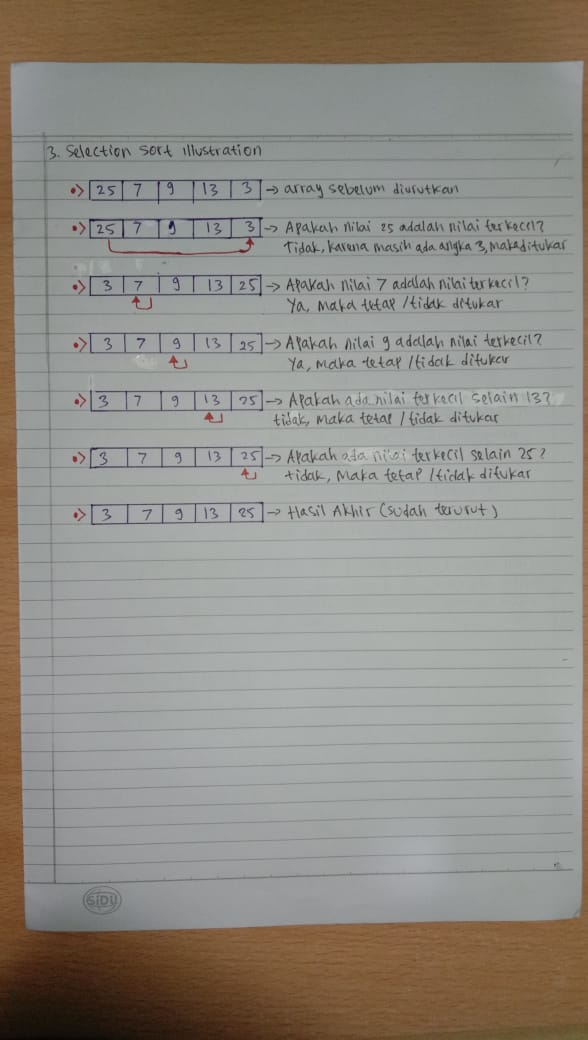 3. Selection sort illustration
•> 25 7 9 13 3 → array sebelum diurutkan
•> 25 7 9 13 3 → Apakah nilai 25 adalah nilai terkecil?
Tidak, karena masih ada angka 3, maka ditukar
•> 3 7 9 13 25 → Apakah nilai 7 adalah nilai terkecil?
Ya, maka tetap / tidak ditukar
•> 3 7 9 13 25 → Apakah nilai 9 adalah nilai terkecil?
Ya, maka tetap / tidak ditukar
•> 3 7 9 13 25 → Apakah ada nilai terkecil selain 13?
tidak, maka tetap / tidak ditukar
•> 3 7 9 13 25 → Apakah ada nilai terkecil selain 25?
tidak, maka tetap / tidak ditukar
•> 3 7 9 13 25 → Hasil Akhir (sudah terurut)
SIDU